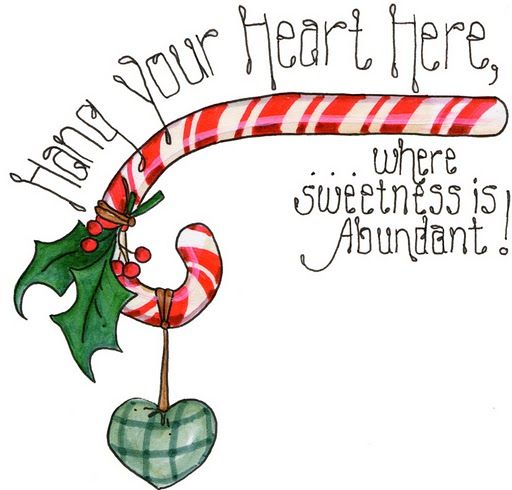 Hang Your Heart Here,
where
sweetness is
Abundant!